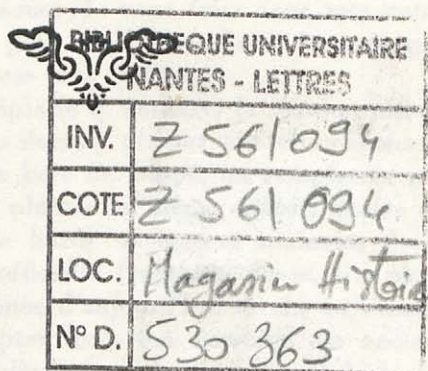 BIBLIOTHEQUE UNIVERSITAIRE
NANTES - LETTRES
INV. Z 561 094
COTE Z 561 094
LOC. Magasin Histoire
N° D. 530 363